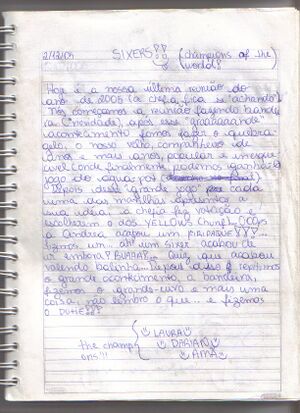 2/12/05 SIXERS!! (champions of the world!)
Hoje é a nossa última reunião do
ano de 2005 (a chefa fica se "achando")
Nós começamos a reunião fazendo bandeira
(q novidade), após esse "graaaaande"
acontecimento fomos fazer o quebra-
gelo, o nosso velho, companheiro de
anos e mais anos, popular e inesque
cível (onde finalmente podemos ganhar)o
jogo do
Depois desse "grande jogo" cada
uma das matilhas apresentou a
sua idéia. a chefia fez votação e
escolheram o dos YELLOWS (have!) Ooops
a Carolina, acabou um PIRIPAQUE!!!...
tigmos um... ah! um sixer acabou de
ir embora! BUÁÁÁÁ!... Quiz, que acabou
valendo balinha... Depois disso repitimos
o grande acontecimento, a bandeira,
fizemos o grande-uivo e mais uma
coisa, não lembro o que... e fizemos
o
the champi
ons!!!
LAURA
DARIAN
AMA